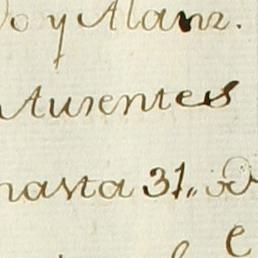 y Alanz.
Ausentes
hasta 31.. de